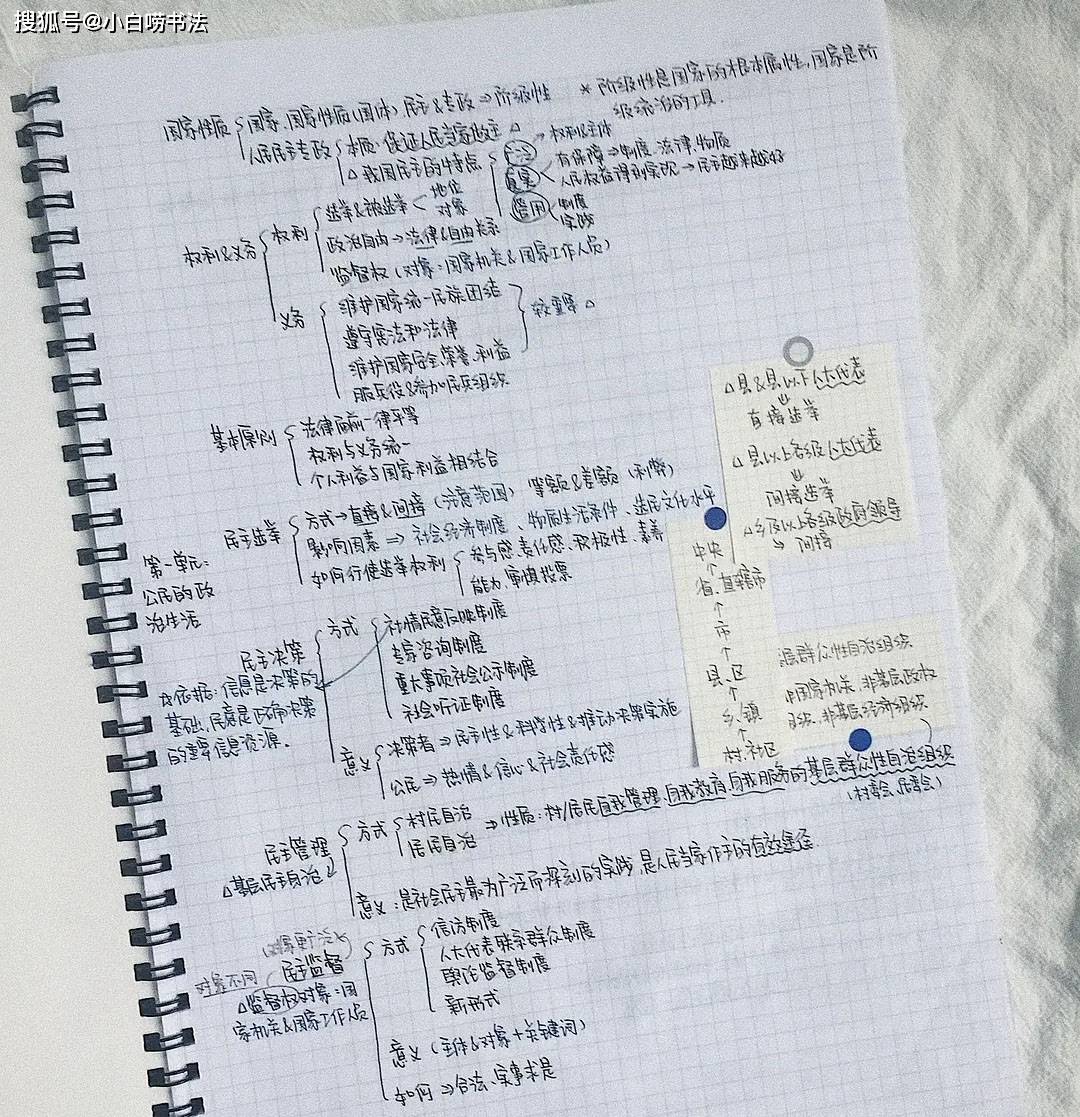 搜狐号@小白唠书法
国家性质 国家、国家性质(国体)、民主&专政⇒阶级性 *阶级性是国家的根本属性,国家是阶
级统治的工具.
人民民主专政 本质:保证人民当家做主△
△我国民主的特点 广泛→权利&主体
真实 有保障→制度、法律、物质
人民权益得到实现→民主越来越好
管用 制度
实践
权利&义务 权利 选举&被选举 地位
对象
政治自由→法律&自由关系
监督权(对象:国家机关&国家工作人员)
义务 维护国家统一民族团结
遵守宪法和法律
维护国家安全、荣誉、利益
较重要△
服兵役&参加民兵组织
基本原则 法律面前一律平等
权利与义务统一
个人利益与国家利益相结合
第一单元:
公民的政
治生活
民主选举 方式→直接&间接(注意范围) 等额&差额(利弊)
影响因素⇒社会经济制度、物质生活条件、选民文化水平
如何行使选举权利 参与感、责任感、积极性、素养
能力、审慎投票
民主决策 方式 社情民意反映制度
专家咨询制度
重大事项社会公示制度
社会听证制度
依据:信息是决策的
基础,民意是政府决策
的重要信息资源.
意义 决策者⇒民主性&科学性&推动决策实施
公民⇒热情&信心&社会责任感
民主管理
△基层民主自治
方式 村民自治
居民自治
⇒性质:村/居民自我管理、自我教育、自我服务的基层群众性自治组织
(村委会、居委会)
意义:是社会民主最为广泛而深刻的实践,是人民当家作主的有效途径
对象更广泛
对象不同 民主监督
△监督权对象:国
家机关&国家工作人员
方式 信访制度
人大代表联系群众制度
舆论监督制度
新形式
意义(主体&对象+关键词)
如何⇒合法、实事求是
△县&县以下人大代表
⇓
直接选举
△县以上各级人大代表
⇓
间接选举
△乡及以上各级政府领导
→间接
中央
↑
省、直辖市
↑
市
↑
县、区
↑
乡、镇
↑
村、社区
基层群众性自治组织
国家机关、非基层政权
组织、非基层经济组织